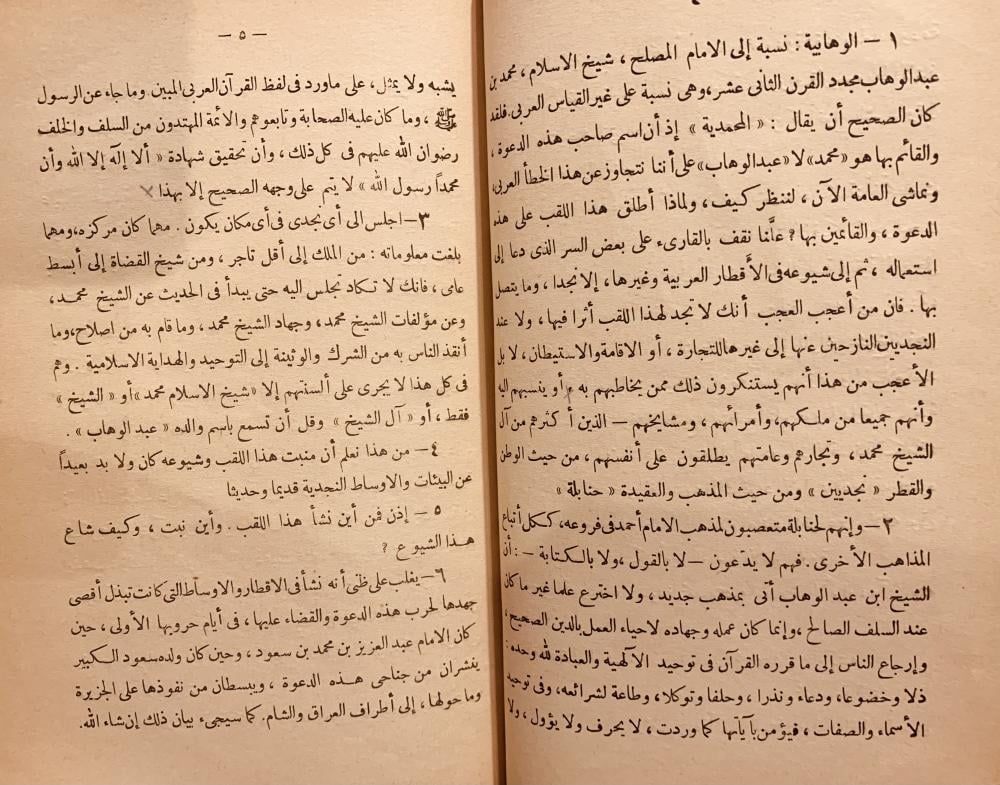 ١ – الوهابية : نسبة إلى الامام المصلح ، شيخ الاسلام ، محمد بن
عبد الوهاب مجدد القرن الثانى عشر ، وهى نسبة على غير القياس العربى . فلقد
كان الصحيح أن يقال : « المحمدية » إذ أن اسم صاحب هذه الدعوة ،
والقائم بها هو « محمد » لا « عبد الوهاب » على أننا نتجاوز عن هذا الخطأ العربى
ونماشى العامة الآن ، لننظر كيف ، ولماذا أطلق هذا اللقب على هذه
الدعوة ، والقائمين بها ؟ علَّنا نقف بالقارىء على بعض السر الذى دعا إلى
استعماله ، ثم إلى شيوعه فى الأقطار العربية وغيرها ، إلا نجدا ، وما يتصل
بها . فان من أعجب العجب أنك لا تجد لهذا اللقب أثرا فيها ، ولا عند
النجديين النازحين عنها إلى غيرها للتجارة ، أو الاقامة والاستيطان ، لا بل
الأعجب من هذا أنهم يستنكرون ذلك ممن يخاطبهم به ، أو ينسبهم اليه
وأنهم جميعا من ملكهم ، وأمرائهم ، ومشايخهم – الذين أكثرهم من آل
الشيخ محمد ، وتجارهم وعامتهم يطلقون على أنفسهم ، من حيث الوطن
والقطر « نجديين » ومن حيث المذهب والعقيدة « حنابلة »
٢ – وإنهم لحنابلة متعصبون لمذهب الامام أحمد فى فروعه ، ككل أتباع
المذاهب الأخرى . فهم لا يدعون – لا بالقول ، ولا بالكتابة – : أن
الشيخ ابن عبد الوهاب أتى بمذهب جديد ، ولا اخترع علما غير ما كان
عند السلف الصالح ، وإنما كان عمله وجهاده لاحياء العمل بالدين الصحيح ،
وإرجاع الناس إلى ما قرره القرآن فى توحيد الآلهية والعبادة لله وحده .
ذلا وخضوعا ، ودعاء ونذرا ، وحلفا وتوكلا ، وطاعة لشرائعه ، وفى توحيد
الأسماء والصفات ، فيؤمن بآياتها كما وردت ، لا يحرف ولا يؤول ، ولا
– ٥ –
يشبه ولا يمثل ، على ما ورد فى لفظ القرآن العربى المبين . وما جاء عن الرسول
ﷺ ، وما كان عليه الصحابة وتابعوهم والائمة المهتدون من السلف والخلف
رضوان الله عليهم فى كل ذلك ، وأن تحقيق شهادة « ألا إلٓه إلا الله وأن
محمداً رسول الله » لا يتم على وجهه الصحيح إلا بهذا
٣ – اجلس الى أى نجدى فى أى مكان يكون . مهما كان مركزه ، ومهما
بلغت معلوماته : من الملك إلى أقل تاجر ، ومن شيخ القضاة إلى أبسط
عامى ، فانك لا تكاد تجلس اليه حتى يبدأ فى الحديث عن الشيخ محمد ،
وعن مؤلفات الشيخ محمد ، وجهاد الشيخ محمد ، وما قام به من اصلاح ، وما
أنقذ الناس به من الشرك والوثنية إلى التوحيد والهداية الاسلامية . وهم
فى كل هذا لا يجرى على ألسنتهم إلا « شيخ الاسلام محمد » أو « الشيخ »
فقط ، أو « آل الشيخ » وقل أن تسمع باسم والده « عبد الوهاب » .
٤ – من هذا نعلم أن منبت هذا اللقب وشيوعه كان ولا بد بعيداً
عن البيئات والاوساط النجدية قديما وحديثا
٥ – إذن فمن أين نشأ هذا اللقب . وأين نبت ، وكيف شاع
هذا الشيوع ؟
٦ – يغلب على ظنى أنه نشأ فى الاقطار والاوساط التى كانت تبذل أقصى
جهدها لحرب هذه الدعوة والقضاء عليها ، فى أيام حروبها الأولى ، حين
كان الامام عبد العزيز بن محمد بن سعود ، وحين كان ولده سعود الكبير
ينشران من جناحى هذه الدعوة ، ويبسطان من نفوذها على الجزيرة
وما حولها ، إلى أطراف العراق والشام . كما سيجىء بيان ذلك إن شاء الله .